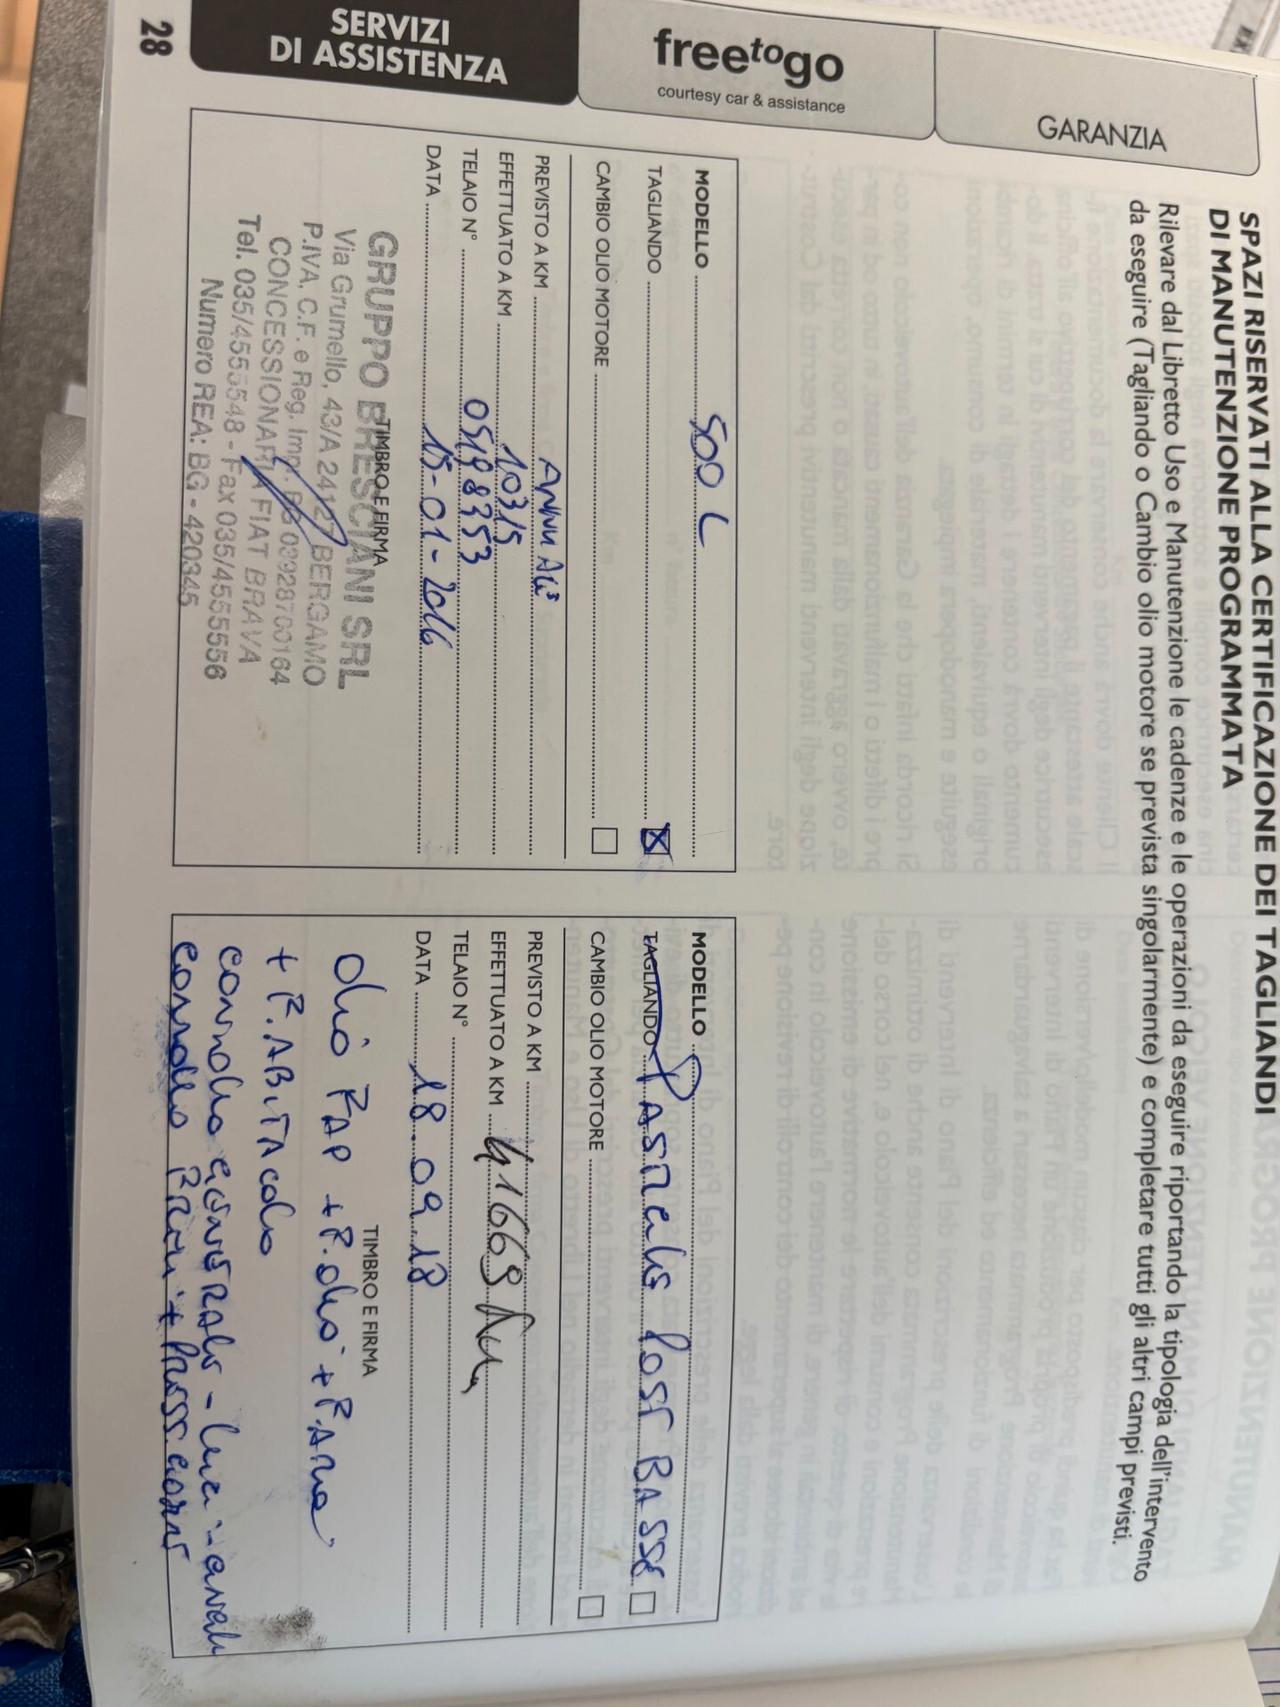 SPAZI RISERVATI ALLA CERTIFICAZIONE DEI TAGLIANDI
DI MANUTENZIONE PROGRAMMATA
Rilevare dal Libretto Uso e Manutenzione le cadenze e le operazioni da eseguire riportando la tipologia dell'intervento
da eseguire (Tagliando o Cambio olio motore se prevista singolarmente) e completare tutti gli altri campi previsti.
GARANZIA
freetogo
courtesy car & assistance
SERVIZI
DI ASSISTENZA
28
MODELLO 500 L
TAGLIANDO
CAMBIO OLIO MOTORE
PREVISTO A KM
EFFETTUATO A KM 10315
TELAIO N° 05198353
DATA 15-01-2016
TIMBRO E FIRMA
GRUPPO BRESCIANI SRL
Via Grumello, 43/A 24127 BERGAMO
P.IVA. C.F. e Reg. Imp. BG 03928700164
CONCESSIONARIA FIAT BRAVA
Tel. 035/4555548 - Fax 035/4555556
Numero REA: BG - 420345
MODELLO
TAGLIANDO POST BASSE
CAMBIO OLIO MOTORE
PREVISTO A KM
EFFETTUATO A KM 41669
TELAIO N°
DATA 18.09.18
TIMBRO E FIRMA
olio + F. olio + F. ARIA
+ F. ABITACOLO
controllo GENERALE - luci
controllo